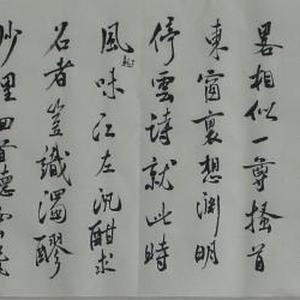 畧相似一尊搔首
東窗裏想淵明
停雲詩就此時
風味江左沉酣求
名者豈識濁醪
妙理回首